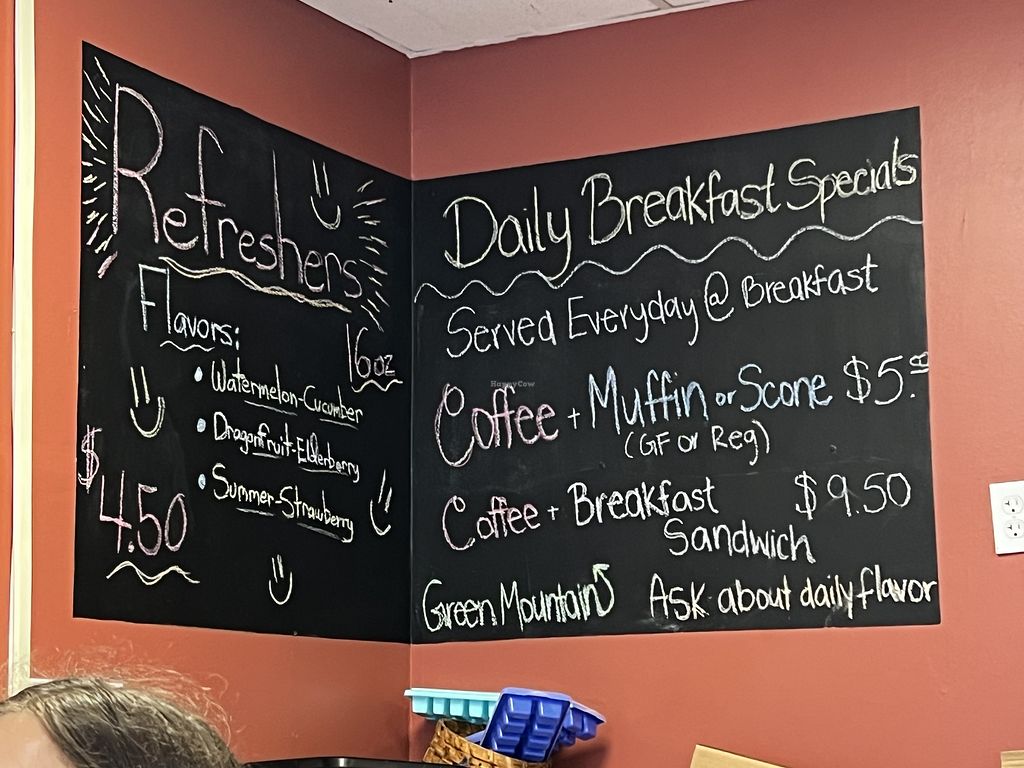 Refreshers
Flavors:
16oz
• Watermelon-Cucumber
• Dragonfruit-Elderberry
• Summer-Strawberry
$4.50
Daily Breakfast Specials
Served Everyday @ Breakfast
Coffee + Muffin or Scone $5.
(GF or Reg)
Coffee + Breakfast $9.50
Sandwich
Green Mountain
Ask about daily flavor
HappyCow